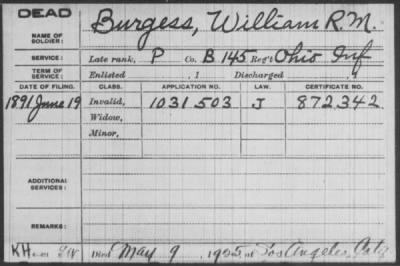 DEAD
NAME OF SOLDIER: Burgess, William R. M.
SERVICE: Late rank, P Co. B 145 Reg't Ohio Inf
TERM OF SERVICE: Enlisted , 1 Discharged , 1
DATE OF FILING. CLASS. APPLICATION NO. LAW. CERTIFICATE NO.
1891 June 19 Invalid, 1031 503 J 872342
Widow,
Minor,
ADDITIONAL SERVICES:
REMARKS:
KH
Died May 9, 1925, at Los Angeles,